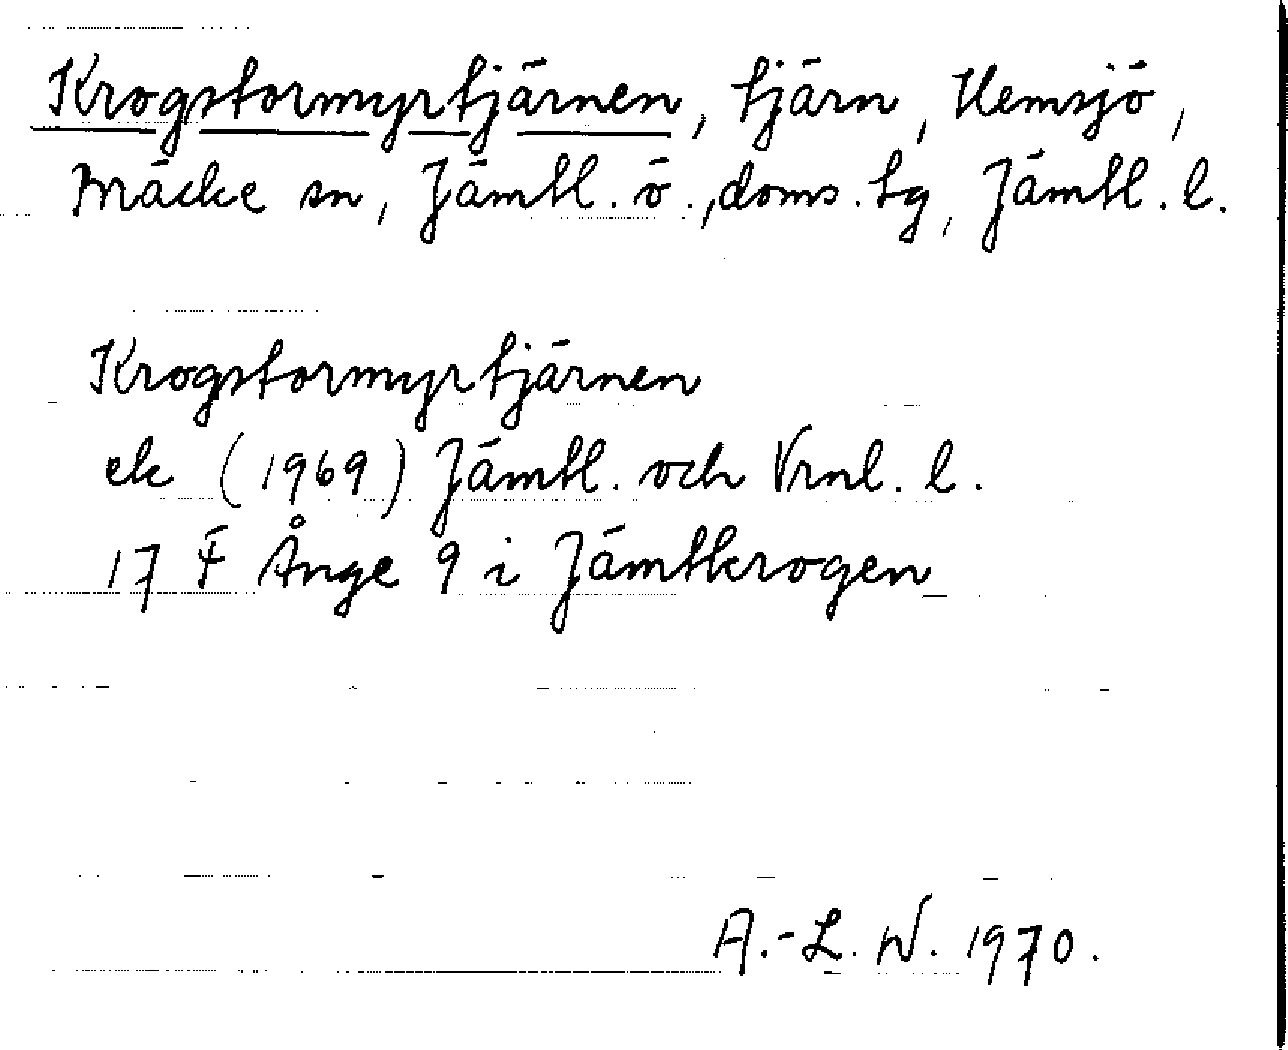 Krogstormyrtjärnen, tjärn, Hemsjö,
Bräcke sn, Jämtl. ö., doms. tg, Jämtl. l.
Krogstormyrtjärnen
ek (1969) Jämtl. och Vrnl. l.
17 F Ånge 9 i Jämtkrogen
A.-L. W. 1970.